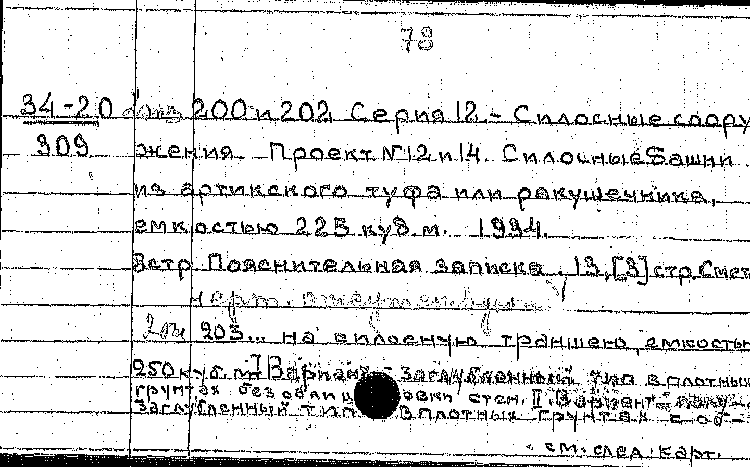 78
34-20 200 и 202 Серия 12. - Силосные соору
309 жения. Проект № 12 и 14. Силосные башни
из артикского туфа или ракушечника,
емкостью 225 куб. м. 1934.
8 стр. Пояснительная записка, 13, [3] стр. Смет
черт.
203... на силосную траншею, емкостью
250 куб. м. I Вариант - заглубленный тип в плотных
грунтах без облицовки стен. II. Вариант -
заглубленный тип в плотных грунтах с об-
см. след. карт.